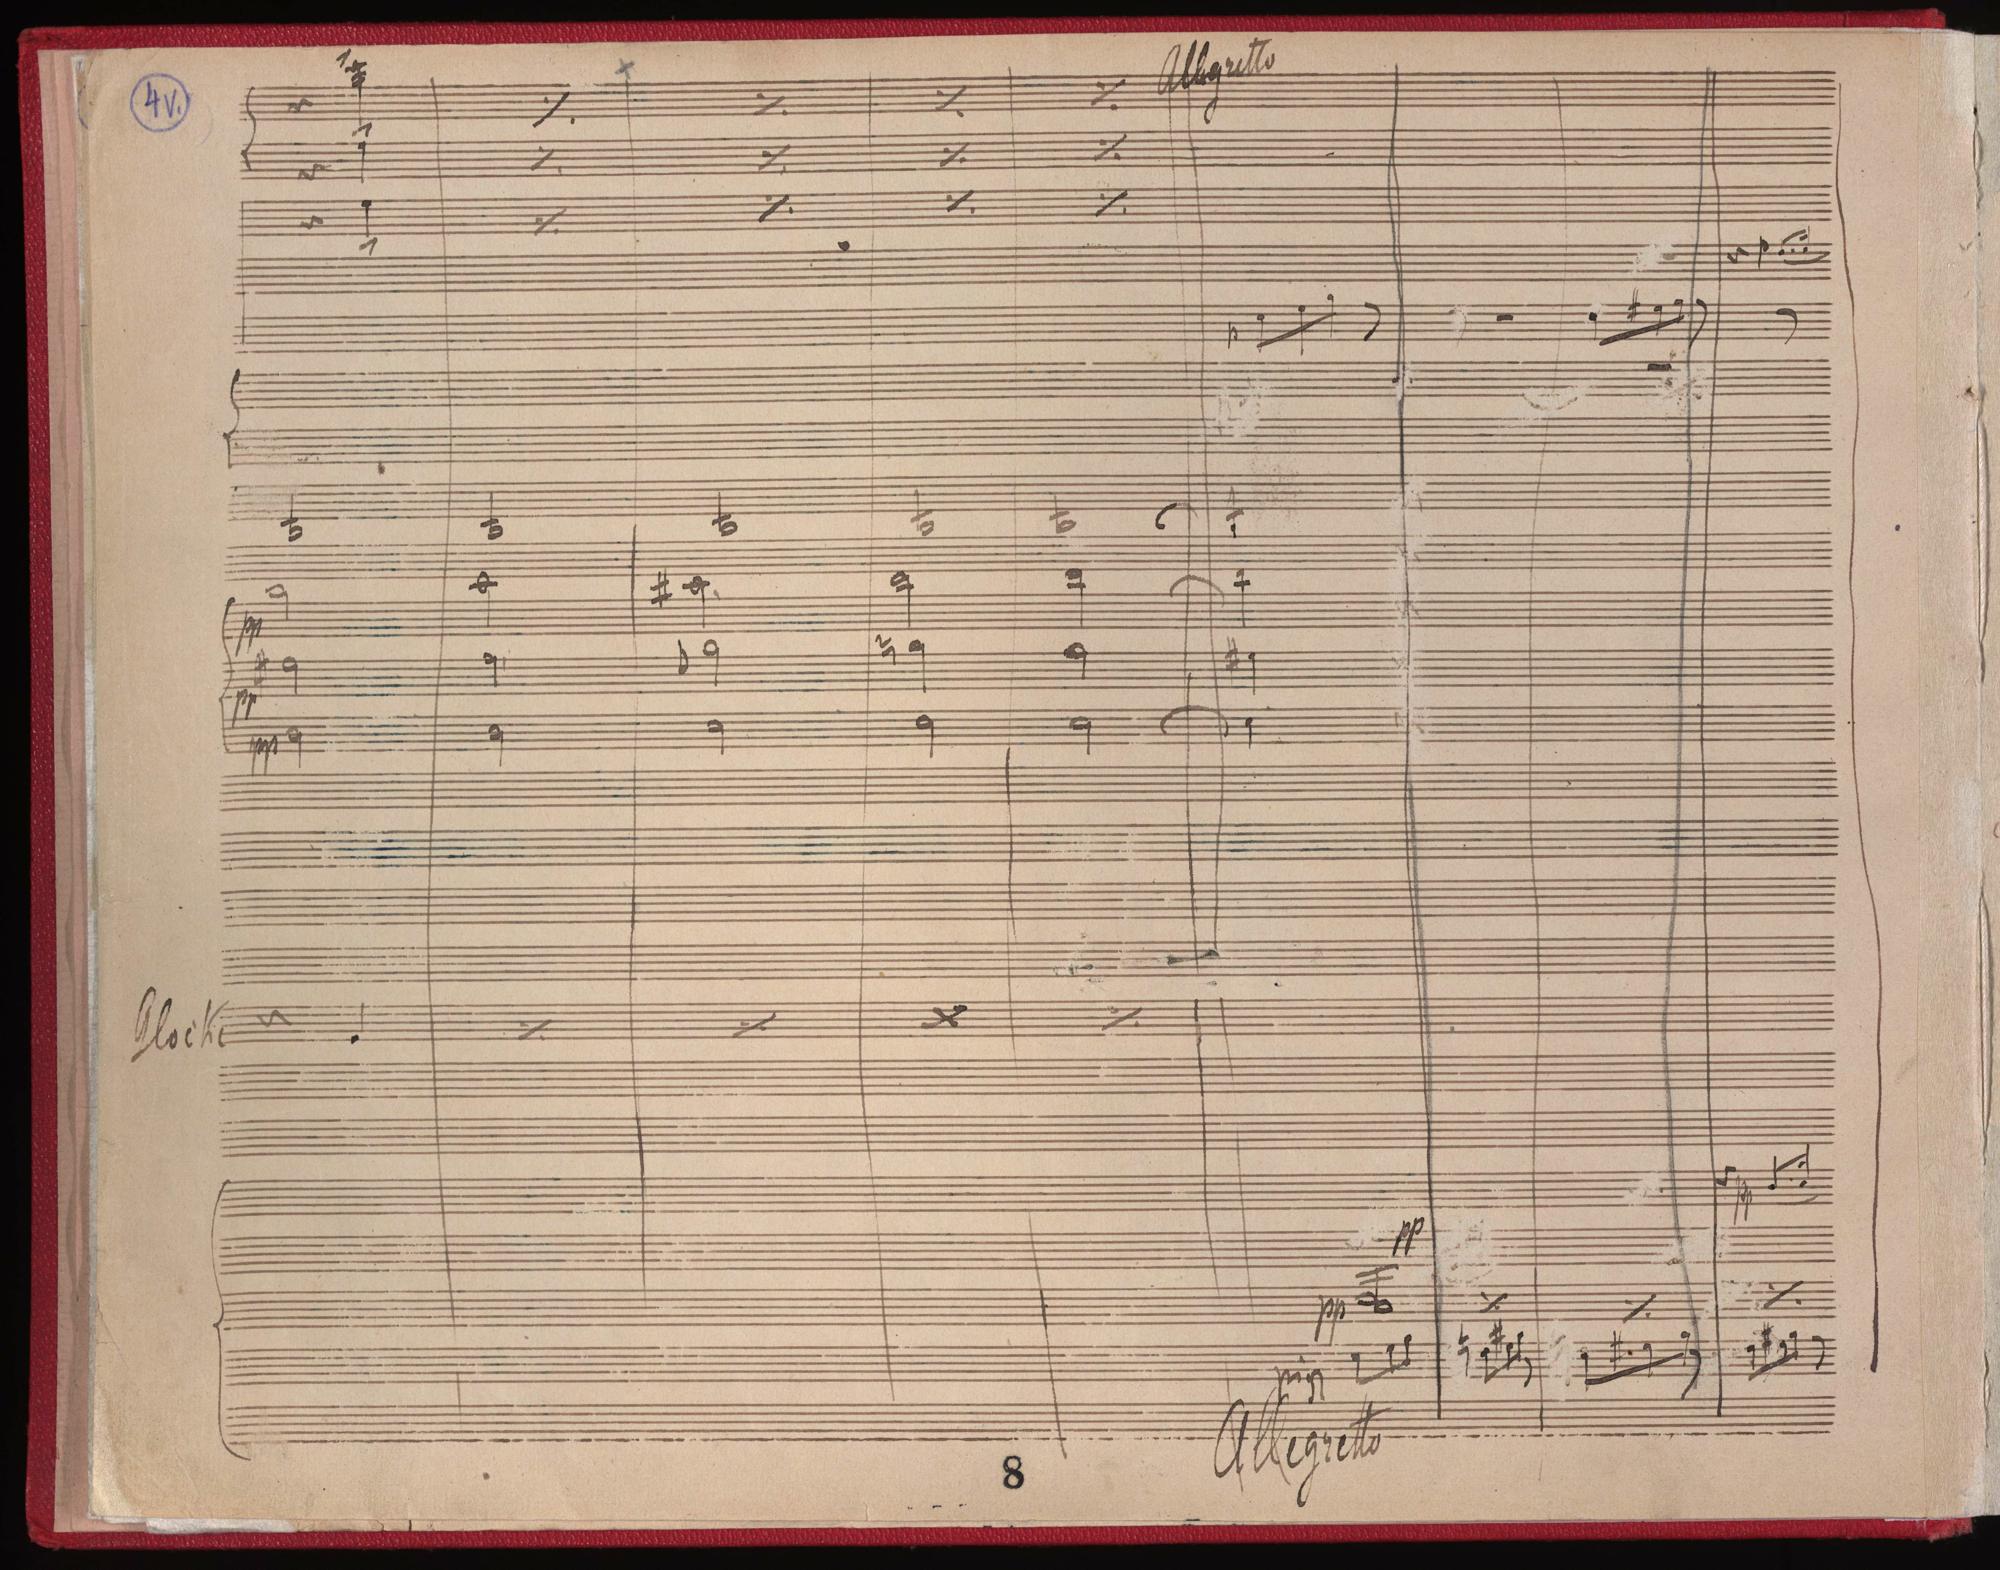 4v.
Allegretto
p
p
pp
pp
pp
Glocke
pp
pp
pp
Allegretto
8